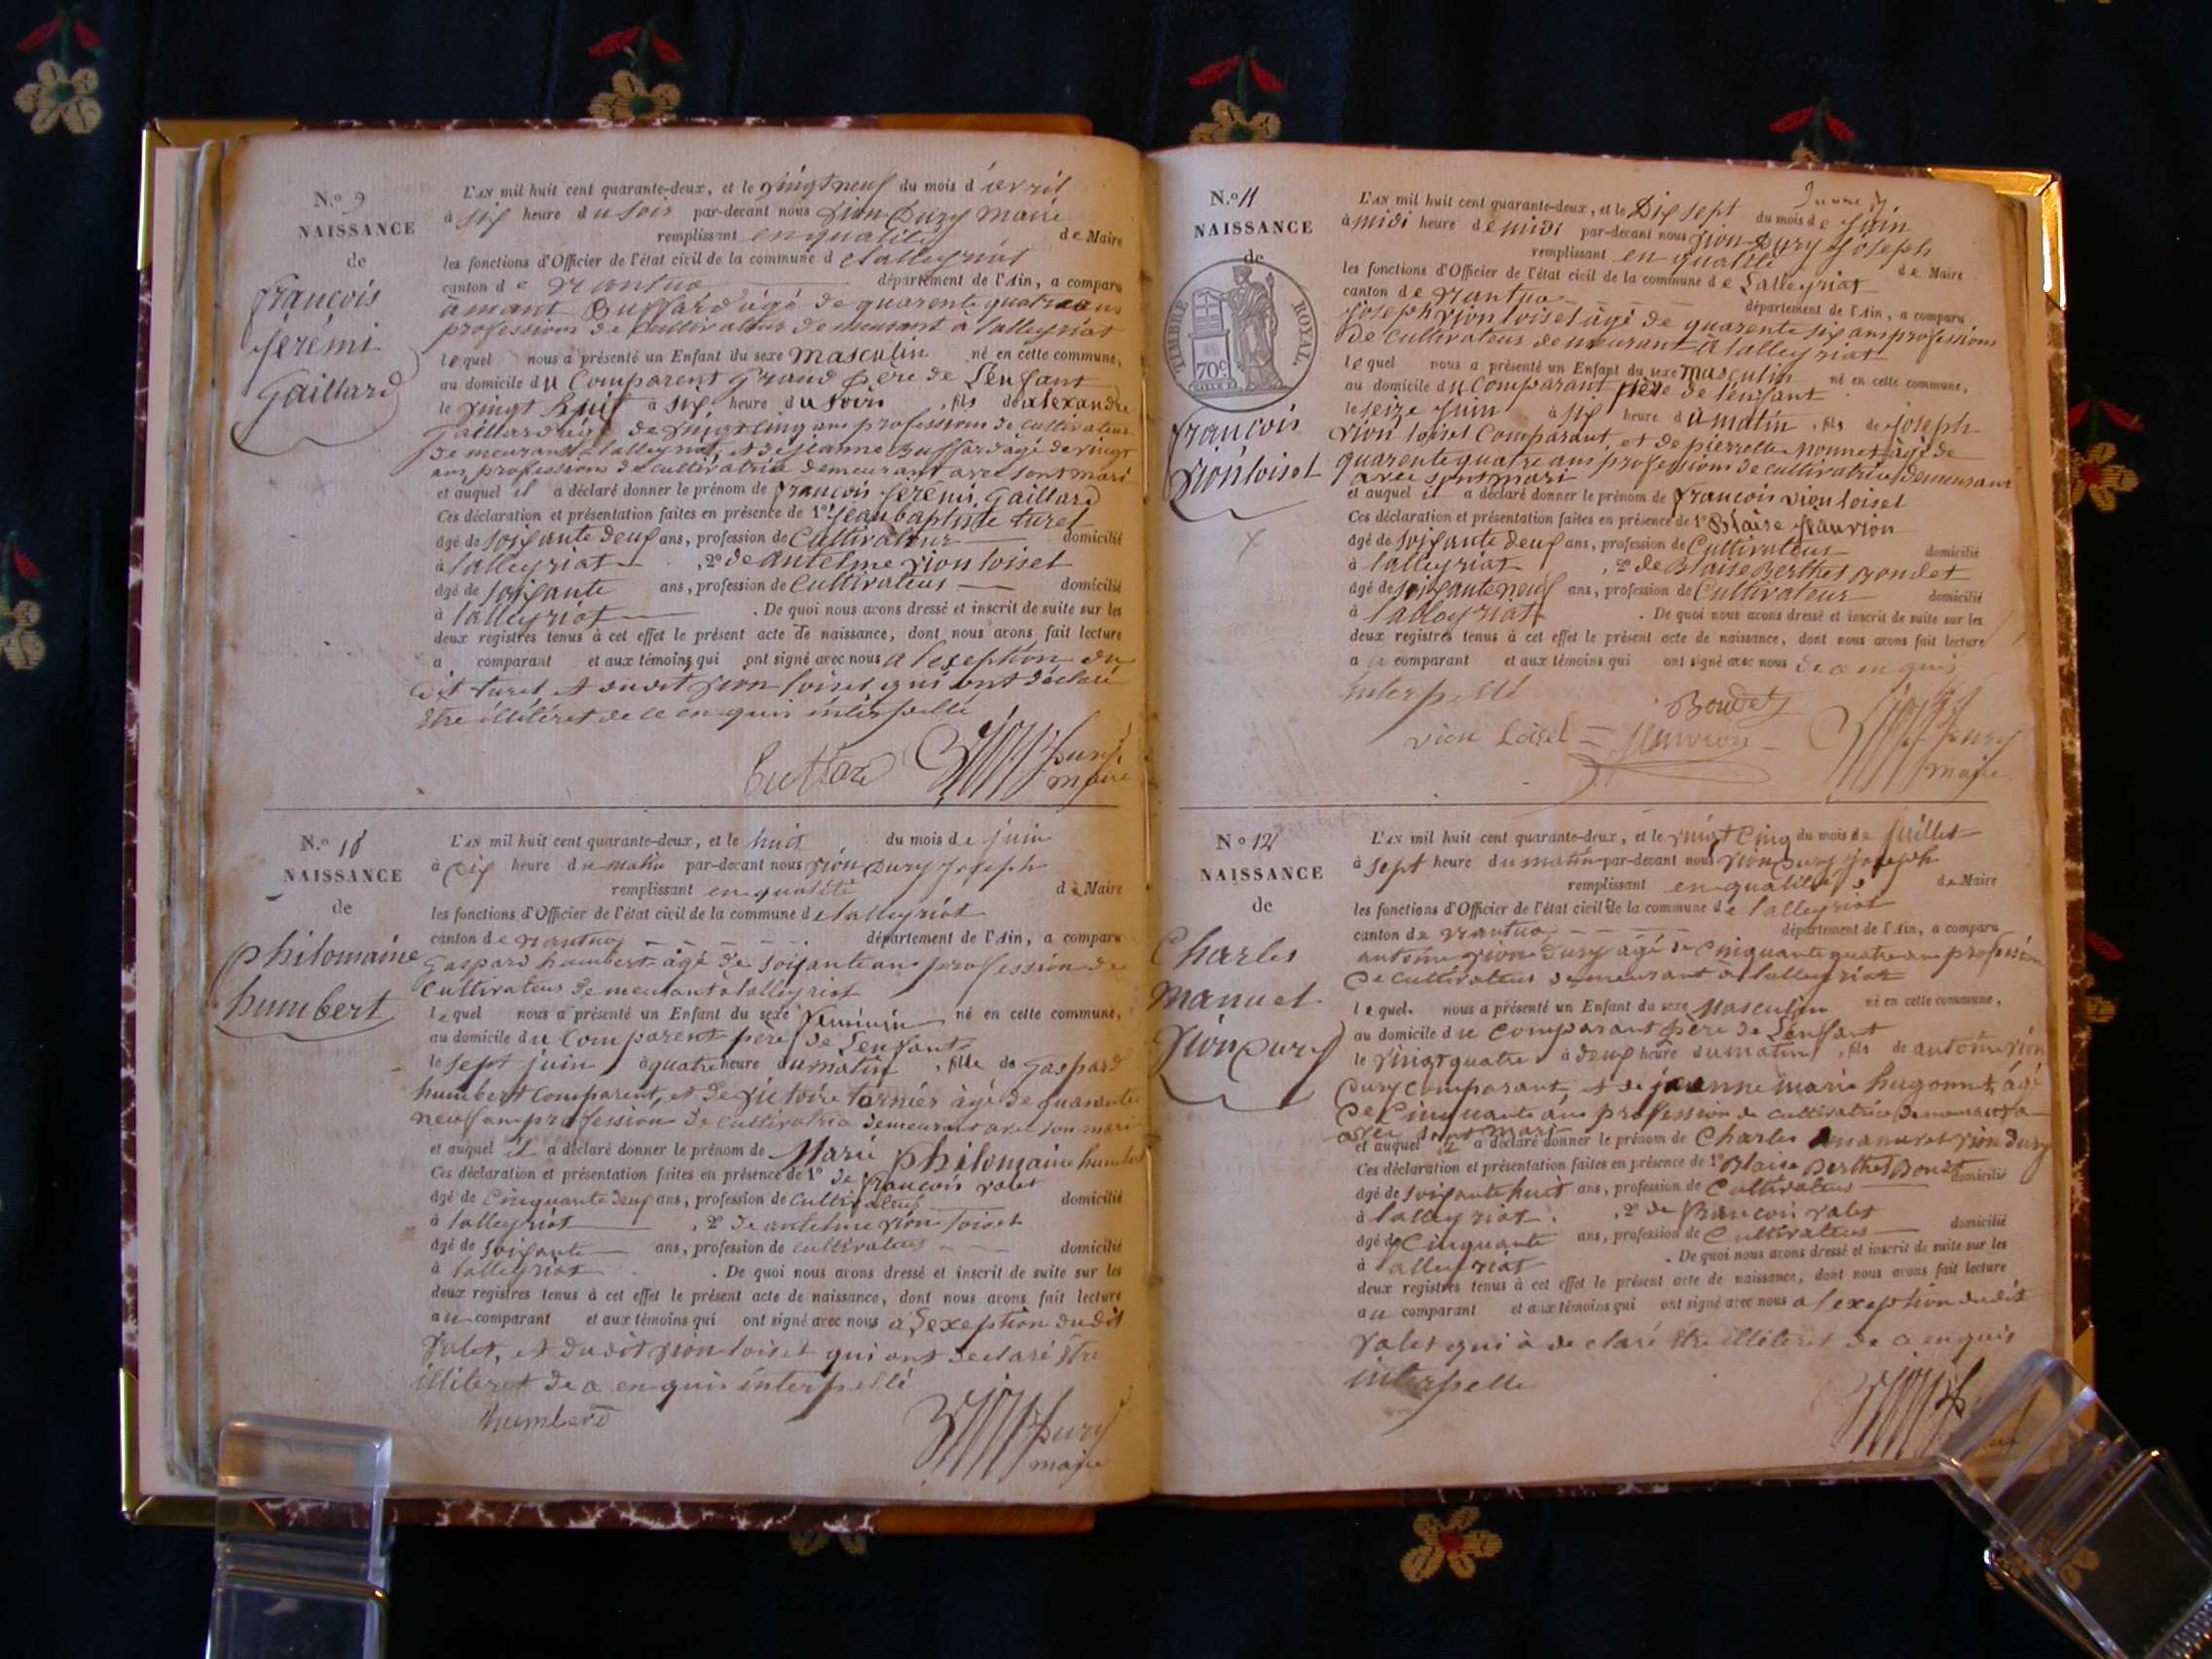 N.º 9
NAISSANCE
de
françois
jerémi
gaillard
L'AN mil huit cent quarante-deux, et le vingt neuf du mois d'avril
à six heure du soir par-devant nous vion Dury maire
remplissant en qualité de Maire
les fonctions d'Officier de l'état civil de la commune de lalleyriat
canton de nantua département de l'Ain, a comparu
amant Buffard âgé de quarente quatre ans
professions de cultivateur demeurant à lalleyriat
lequel nous a présenté un Enfant du sexe masculin né en cette commune,
au domicile du Comparent grand père de L'enfant
le vingt huit à six heure du soir, fils de alexandre
gaillard âgé de vingt cinq ans professions de cultivateur
demeurant à lalleyriat, et de jeanne Buffard âgé de vingt
ans, professions de cultivatrice demeurant avec sont mari
et auquel il a déclaré donner le prénom de françois jerémi gaillard
Ces déclaration et présentation faites en présence de 1º jean baptiste turel
âgé de soixante deux ans, profession de Cultivateur domicilié
à lalleyriat, 2º de antelme vion loiset
âgé de soixante ans, profession de Cultivateur domicilié
à lalleyriat . De quoi nous avons dressé et inscrit de suite sur les
deux registres tenus à cet effet le présent acte de naissance, dont nous avons fait lecture
a comparant et aux témoins qui ont signé avec nous a l'exeption du
dit turel et dudit vion loiset qui ont déclaré
être illitéret de ce enquis interpellé
buffard Dury
maire
N.º 10
NAISSANCE
de
philomaine
humbert
L'AN mil huit cent quarante-deux, et le huit du mois de juin
à dix heure du matin par-devant nous vion Dury joseph
remplissant en qualité de Maire
les fonctions d'Officier de l'état civil de la commune de lalleyriat
canton de nantua département de l'Ain, a comparu
Gaspard humbert âgé de soixante ans profession de
Cultivateur demeurant a lalleyriat
lequel nous a présenté un Enfant du sexe feminin né en cette commune,
au domicile du Comparent père de L'enfant
le sept juin à quatre heure du matin, fille de gaspard
humbert comparent, et de victoire tornier âgé de quarante
neuf ans profession de cultivatrice demeurant avec son mari
et auquel il a déclaré donner le prénom de Marie philomaine humbert
Ces déclaration et présentation faites en présence de 1º de françois valet
âgé de Cinquante deux ans, profession de Cultivateur domicilié
à lalleyriat, 2º de antelme vion loiset
âgé de soixante ans, profession de cultivateur domicilié
à lalleyriat . De quoi nous avons dressé et inscrit de suite sur les
deux registres tenus à cet effet le présent acte de naissance, dont nous avons fait lecture
au comparant et aux témoins qui ont signé avec nous a L'exeption du dit
valet, et dudit vion loiset qui ont declaré être
illiteret de ce enquis interpellé
humbert Dury
maire
N.º 11
NAISSANCE
de
TIMBRE ROYAL.
70c
françois
vion loiset
L'AN mil huit cent quarante-deux, et le Dix sept du mois de juin
à midi heure de midi par-devant nous vion Dury joseph
remplissant en qualité de Maire
les fonctions d'Officier de l'état civil de la commune de Lalleyriat
canton de nantua département de l'Ain, a comparu
joseph vion loiset âgé de quarente six ans professions
de cultivateur demeurant a lalleyriat
lequel nous a présenté un Enfant du sexe masculin né en cette commune,
au domicile du Comparant père de l'enfant
le seize juin à six heure du matin, fils de joseph
vion loiset Comparant, et de pierrette monnet âgé de
quarente quatre ans professions de cultivatrice demeurant
avec sont mari
et auquel il a déclaré donner le prénom de françois vion loiset
Ces déclaration et présentation faites en présence de 1º Blaise jeanvion
âgé de soixante deux ans, profession de Cultivateur domicilié
à lalleyriat, 2º de Blaise Berthet Bondet
âgé de soixante neuf ans, profession de Cultivateur domicilié
à lalleyriat . De quoi nous avons dressé et inscrit de suite sur les
deux registres tenus à cet effet le présent acte de naissance, dont nous avons fait lecture
a comparant et aux témoins qui ont signé avec nous de ce enquis
interpellé
Bondet
vion Loisel = jeanvion Dury
maire
Nº 12
NAISSANCE
de
Charles
manuel
vion dury
L'AN mil huit cent quarante-deux, et le vingt Cinq du mois de juillet
à sept heure du matin par-devant nous vion Dury joseph
remplissant en qualité de Maire
les fonctions d'Officier de l'état civil de la commune de lalleyriat
canton de nantua département de l'Ain, a comparu
antoine vion Dury âgé de Cinquante quatre ans profession
de cultivateur demeurant à lalleyriat
lequel nous a présenté un Enfant du sexe Masculin né en cette commune,
au domicile du comparant père de L'enfant
le vingt quatre à deux heure du matin, fils de antoine vion
Dury comparant, et de jeanne marie hugonnet âgé
de Cinquante ans profession de cultivatrice demeurant
avec sont mari
et auquel il a déclaré donner le prénom de Charles manuel vion Dury
Ces déclaration et présentation faites en présence de 1º Blaise Berthet Bondet
âgé de soixante huit ans, profession de Cultivateur domicilié
à lalleyriat, 2º de francois valet
âgé de Cinquante ans, profession de Cultivateur domicilié
à lalleyriat . De quoi nous avons dressé et inscrit de suite sur les
deux registres tenus à cet effet le présent acte de naissance, dont nous avons fait lecture
au comparant et aux témoins qui ont signé avec nous a lexeption dudit
valet qui à declaré être illiteret de ce enquis
interpelle